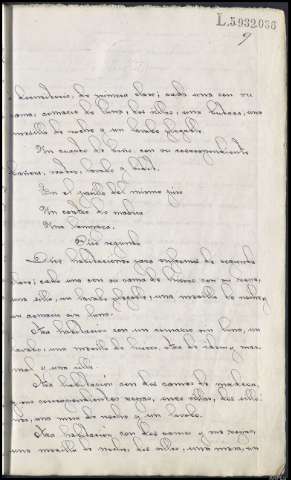 L.5932.036
9
de primera clase; cada una con su
cama, armario de luna, dos sillas, una butaca, una
mesilla de noche y un lavabo plegable.
Un cuarto de baño, con su correspondiente
bañera, water, lavabo y bidet.
En el pasillo del mismo piso
Un costco de madera
Una lámpara.
Piso segundo
Diez habitaciones para enfermos de segunda
clase; cada una con su cama de hierro con su ropa,
una silla, un lavabo plegable, una mesilla de noche y
un armario sin luna.
Otra habitación con un armario sin luna, un
lavabo, una mesilla de hierro, otra de
y una silla.
Otra habitación con dos camas de madera,
y sus correspondientes ropas, unas sillas, dos sillo-
nes, una mesa de noche y un lavabo.
Otra habitación con dos camas y sus ropas,
una mesilla de noche, dos sillas, una mesa, un